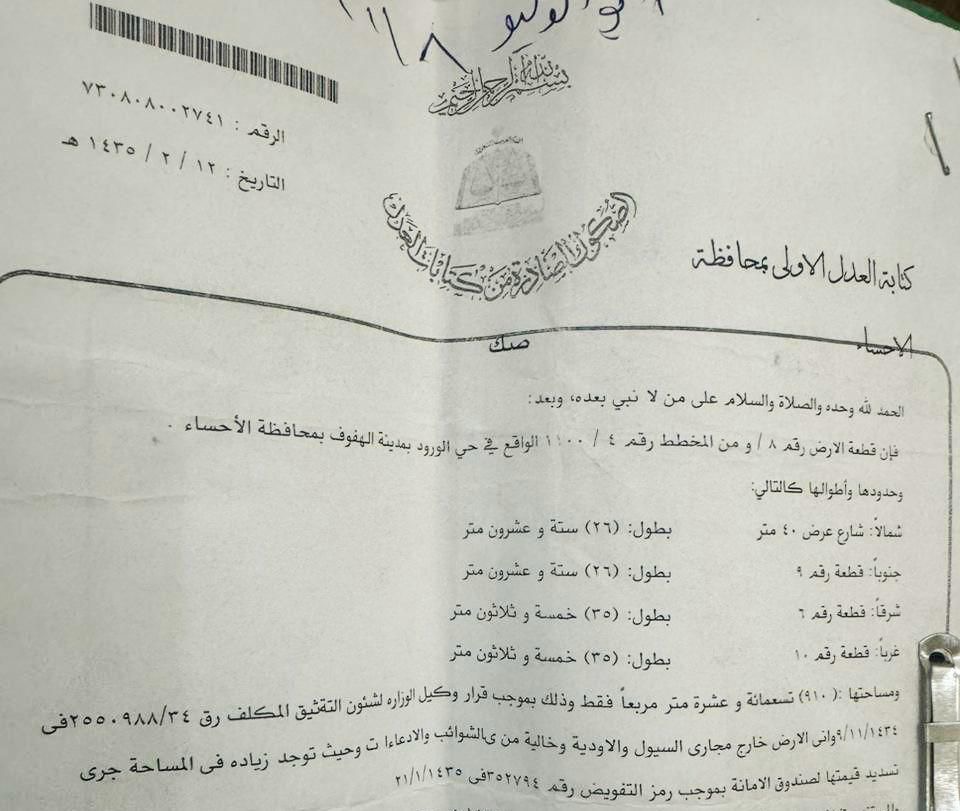 ٨
بسم الله الرحمن الرحيم
الرقم : ٧٣٠٨٠٨٠٠٢٧٤١
التاريخ : ١٢ / ٢ / ١٤٣٥ هـ
الصكوك الصادرة من كتابات العدل
كتابة العدل الاولى بمحافظة
الاحساء
صك
الحمد لله وحده والصلاة والسلام على من لا نبي بعده، وبعد:
فإن قطعة الارض رقم ٨ / و من المخطط رقم ٤ / ١٤٠٠ الواقع في حي الورود بمدينة الهفوف بمحافظة الأحساء .
وحدودها وأطوالها كالتالي:
شمالاً: شارع عرض ٤٠ متر بطول: (٢٦) ستة و عشرون متر
جنوباً: قطعة رقم ٩ بطول: (٢٦) ستة و عشرون متر
شرقاً: قطعة رقم ٦ بطول: (٣٥) خمسة و ثلاثون متر
غرباً: قطعة رقم ١٠ بطول: (٣٥) خمسة و ثلاثون متر
ومساحتها :( ٩١٠) تسعمائة و عشرة متر مربعاً فقط وذلك بموجب قرار وكيل الوزاره لشئون التقثيق المكلف رق ٢٥٥٠٩٨٨/٣٤فى
٩/١١/١٤٣٤وانى الارض خارج مجارى السيول والاودية وخالية من ىالشوائب والادعاءا ت وحيث توجد زياده فى المساحة جرى
تسديد قيمتها لصندوق الامانة بموجب رمز التفويض رقم ٣٥٢٧٩٤فى ٢١/١/١٤٣٥